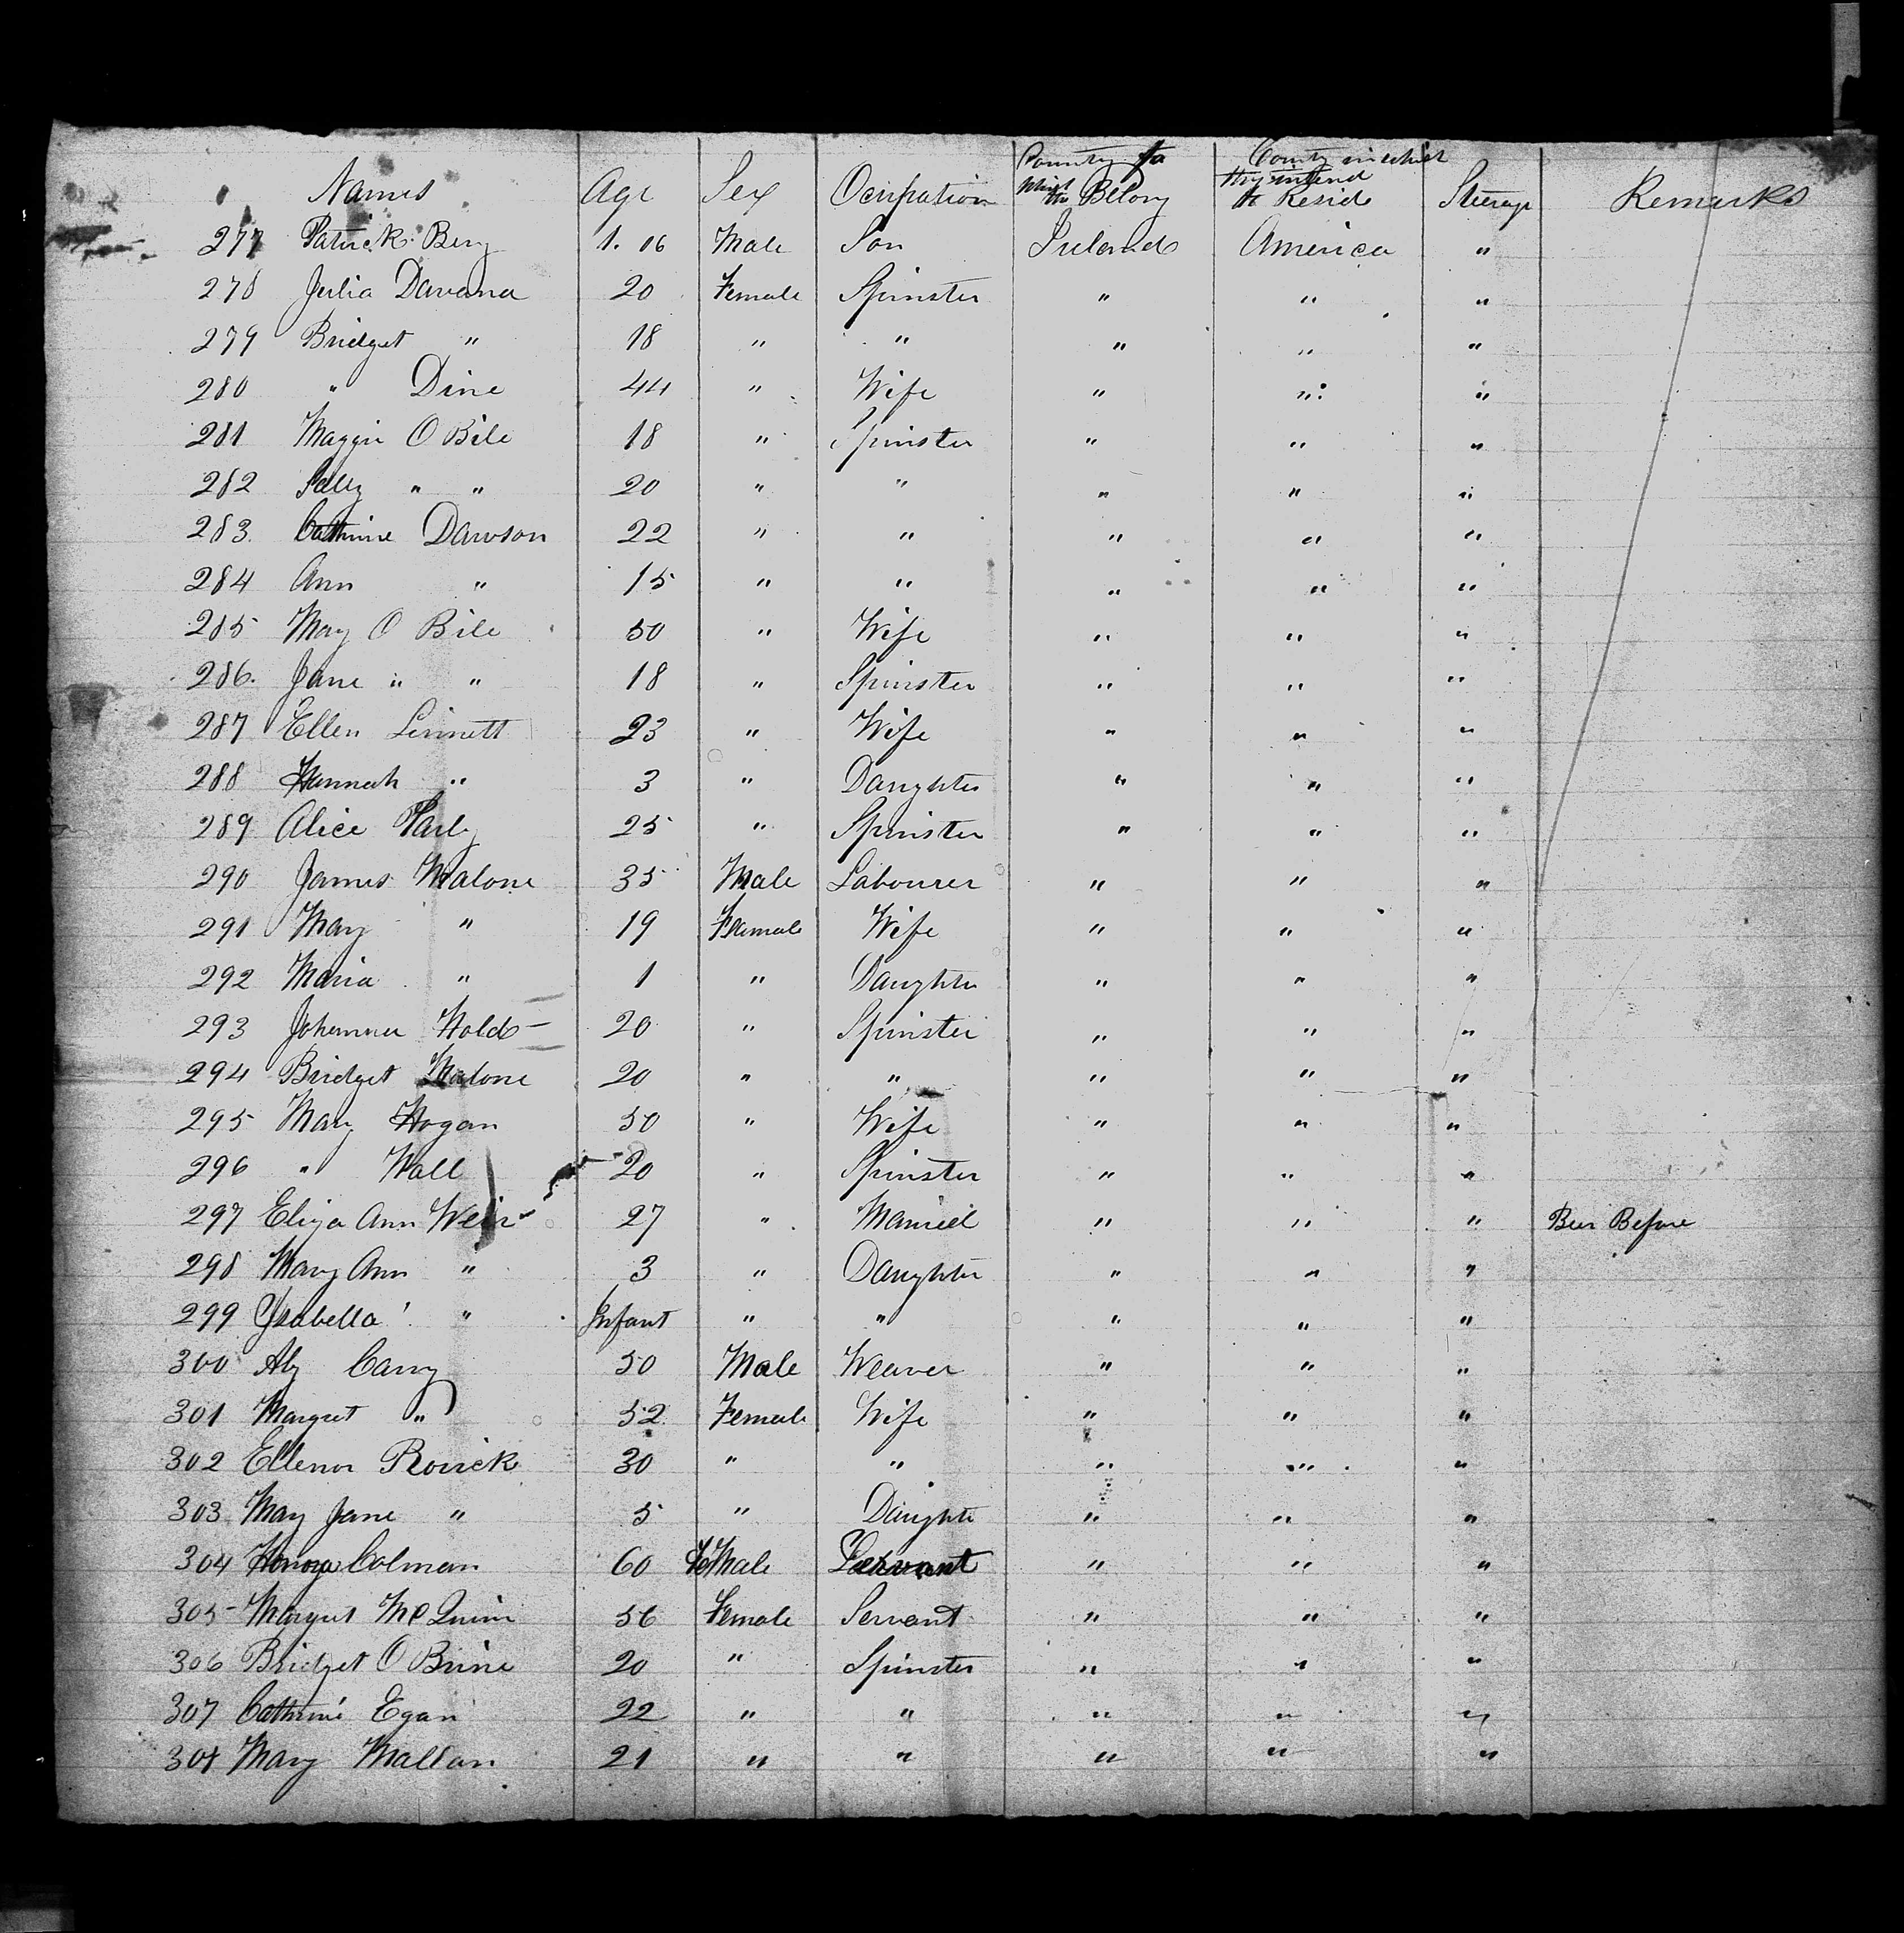 Names Age Sex Ocupation Country to which the Belong County in which they intend to Reside Steerage Remarks
277 Patrick Bery 1.06 Male Son Ireland America "
278 Julia Davana 20 Female Spinster " " "
279 Bridget " 18 " " " " "
280 " Dine 44 " Wife " " "
281 Maggie O Bile 18 " Spinster " " "
282 Sally " " 20 " " " " "
283. Cathrine Dawson 22 " " " " "
284 Ann " 15 " " " " "
285 Mary O Bile 50 " Wife " " "
286. Jane " " 18 " Spinster " " "
287 Ellen Linnett 23 " Wife " " "
288 Hannah " 3 " Daughter " " "
289 Alice 25 " Spinster " " "
290 James Malone 35 Male Labourer " " "
291 Mary " 19 Female Wife " " "
292 Maria " 1 " Daughter " " "
293 Johanna 20 " Spinster " " "
294 Bridget Malone 20 " " " " "
295 Mary Hogan 50 " Wife " " "
296 " Wall 20 " Spinster " " "
297 Eliza Ann Weir 27 " Married " " " Bee Before
298 Mary Ann " 3 " Daughter " " "
299 Isabella " Infant " " " " "
300 Carry 50 Male Weaver " " "
301 Margret " 52 Female Wife " " "
302 Ellenor Rorick 30 " " " " "
303 Mary Jane " 5 " Daughte " " "
304 Honora Colman 60 FeMale Servant " " "
305 Margret Mc Quinn 56 Female Servant " " "
306 Bridget O Brine 20 " Spinster " " "
307 Cathrine Egan 22 " " " " "
308 Mary Mallan 21 " " " " "